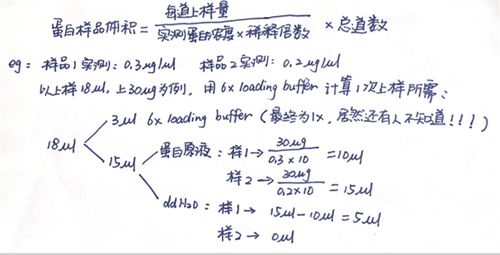 蛋白样品体积 = 每道上样量 / 实测蛋白浓度×稀释倍数 × 总道数
eg: 样品1实测: 0.3ug/ul 样品2实测: 0.2ug/ul
以上样18ul, 上30ug为例, 用6x loading buffer 计算1次上样所需:
18ul
3ul 6x loading buffer (最终为1x, 居然还有人不知道!!!)
15ul
蛋白原液: 样1→ 30ug / 0.3×10 = 10ul
样2→ 30ug / 0.2×10 = 15ul
ddH2O: 样1→ 15ul-10ul=5ul
样2→ 0ul